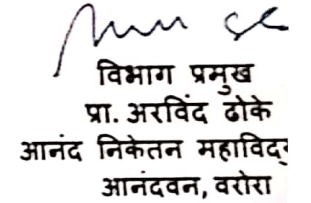 विभाग प्रमुख
प्रा. अरविंद ढोके
आनंद निकेतन
आनंदवन, वरोरा